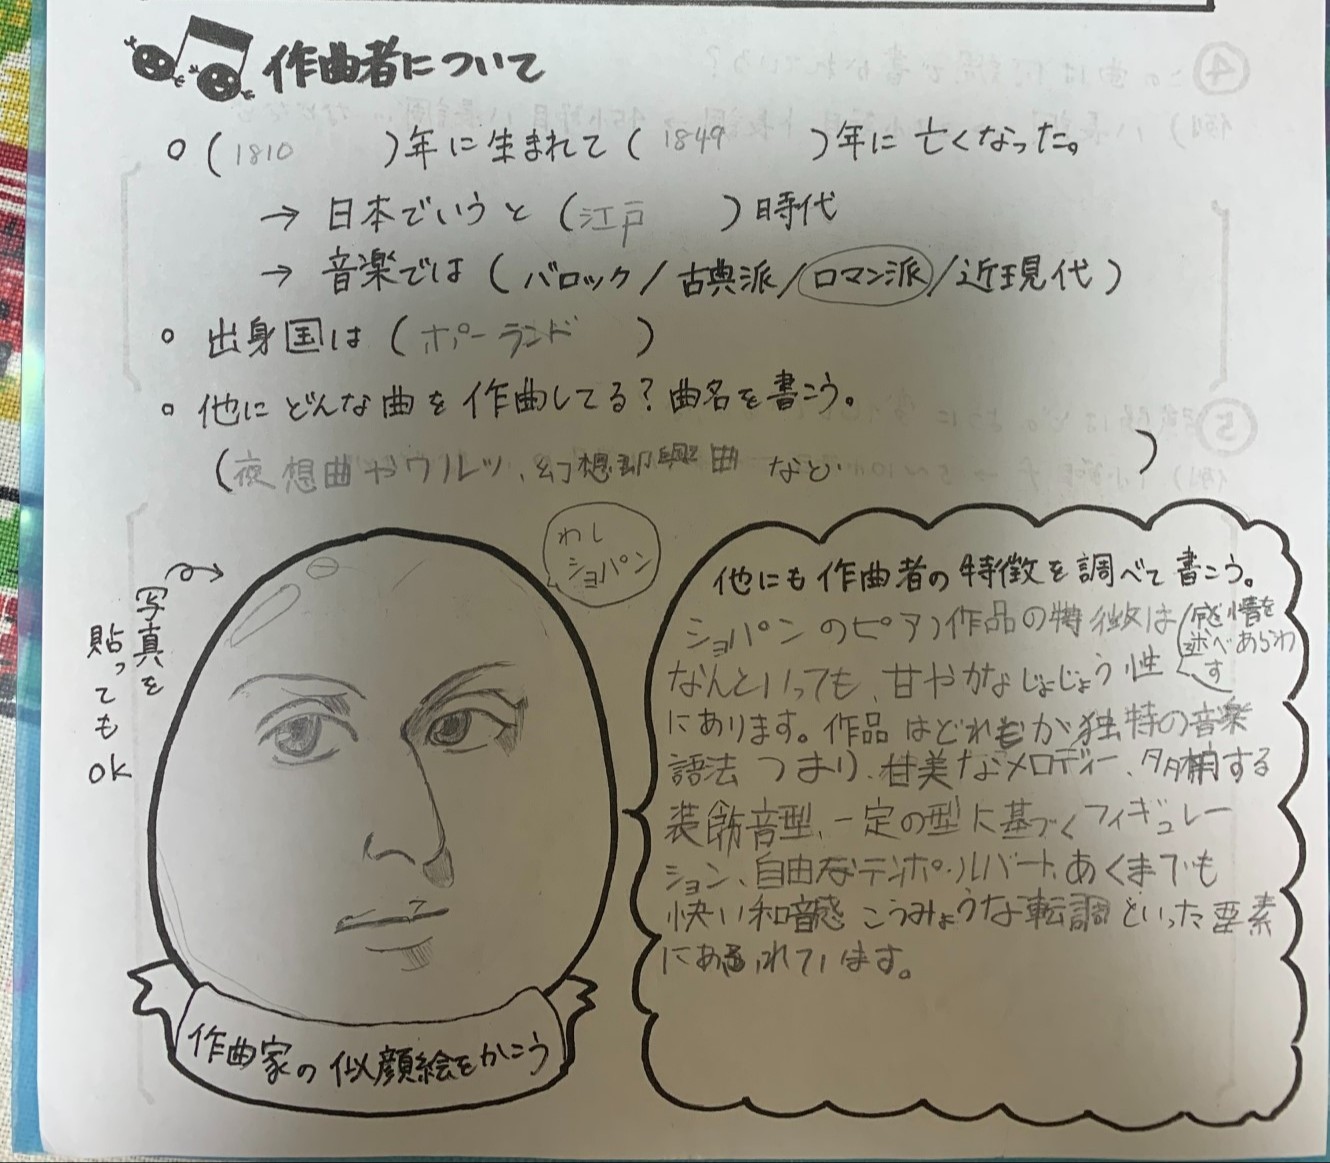 作曲者について
○(1810)年に生まれて(1849)年に亡くなった。
→ 日本でいうと(江戸)時代
→ 音楽では(バロック/古典派/ロマン派/近現代)
○ 出身国は(ポーランド)
○ 他にどんな曲を作曲してる?曲名を書こう。
(夜想曲やワルツ、幻想即興曲 など)
写真を
貼っても
OK
わし
ショパン
作曲家の似顔絵をかこう
他にも作曲者の特徴を調べて書こう。
ショパンのピアノ作品の特徴は
なんといっても、甘やかなじょじょう性
(感情を
述べあらわ
す
にあります。作品はどれもが独特の音楽
語法つまり、甘美なメロディー、多用する
装飾音型、一定の型に基づくフィギュレー
ション、自由なテンポ・ルバート、あくまでも
快い和音感 こうみょうな転調といった要素
にあふれています。